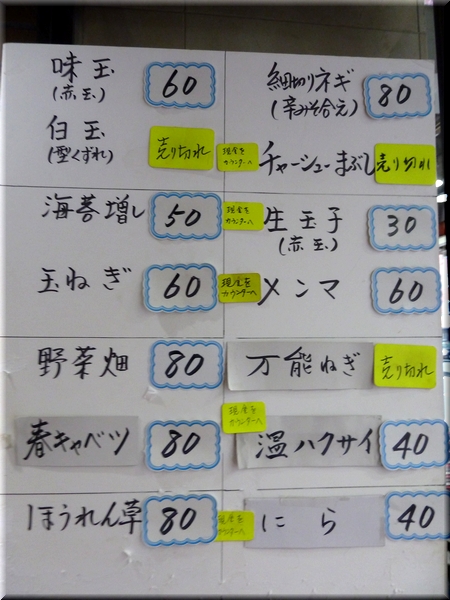 味玉 60
(赤玉)
白玉 売り切れ
(型くずれ)
海苔増し 50
玉ねぎ 60
野菜畑 80
春キャベツ 80
ほうれん草 80
細切りネギ 80
(辛みそ合え)
現金を
カウンターへ
チャーシューまぶし 売り切れ
現金を
カウンターへ
生玉子 30
(赤玉)
現金を
カウンターへ
メンマ 60
万能ねぎ 売り切れ
現金を
カウンターへ
温ハクサイ 40
現金を
カウンターへ
にら 40